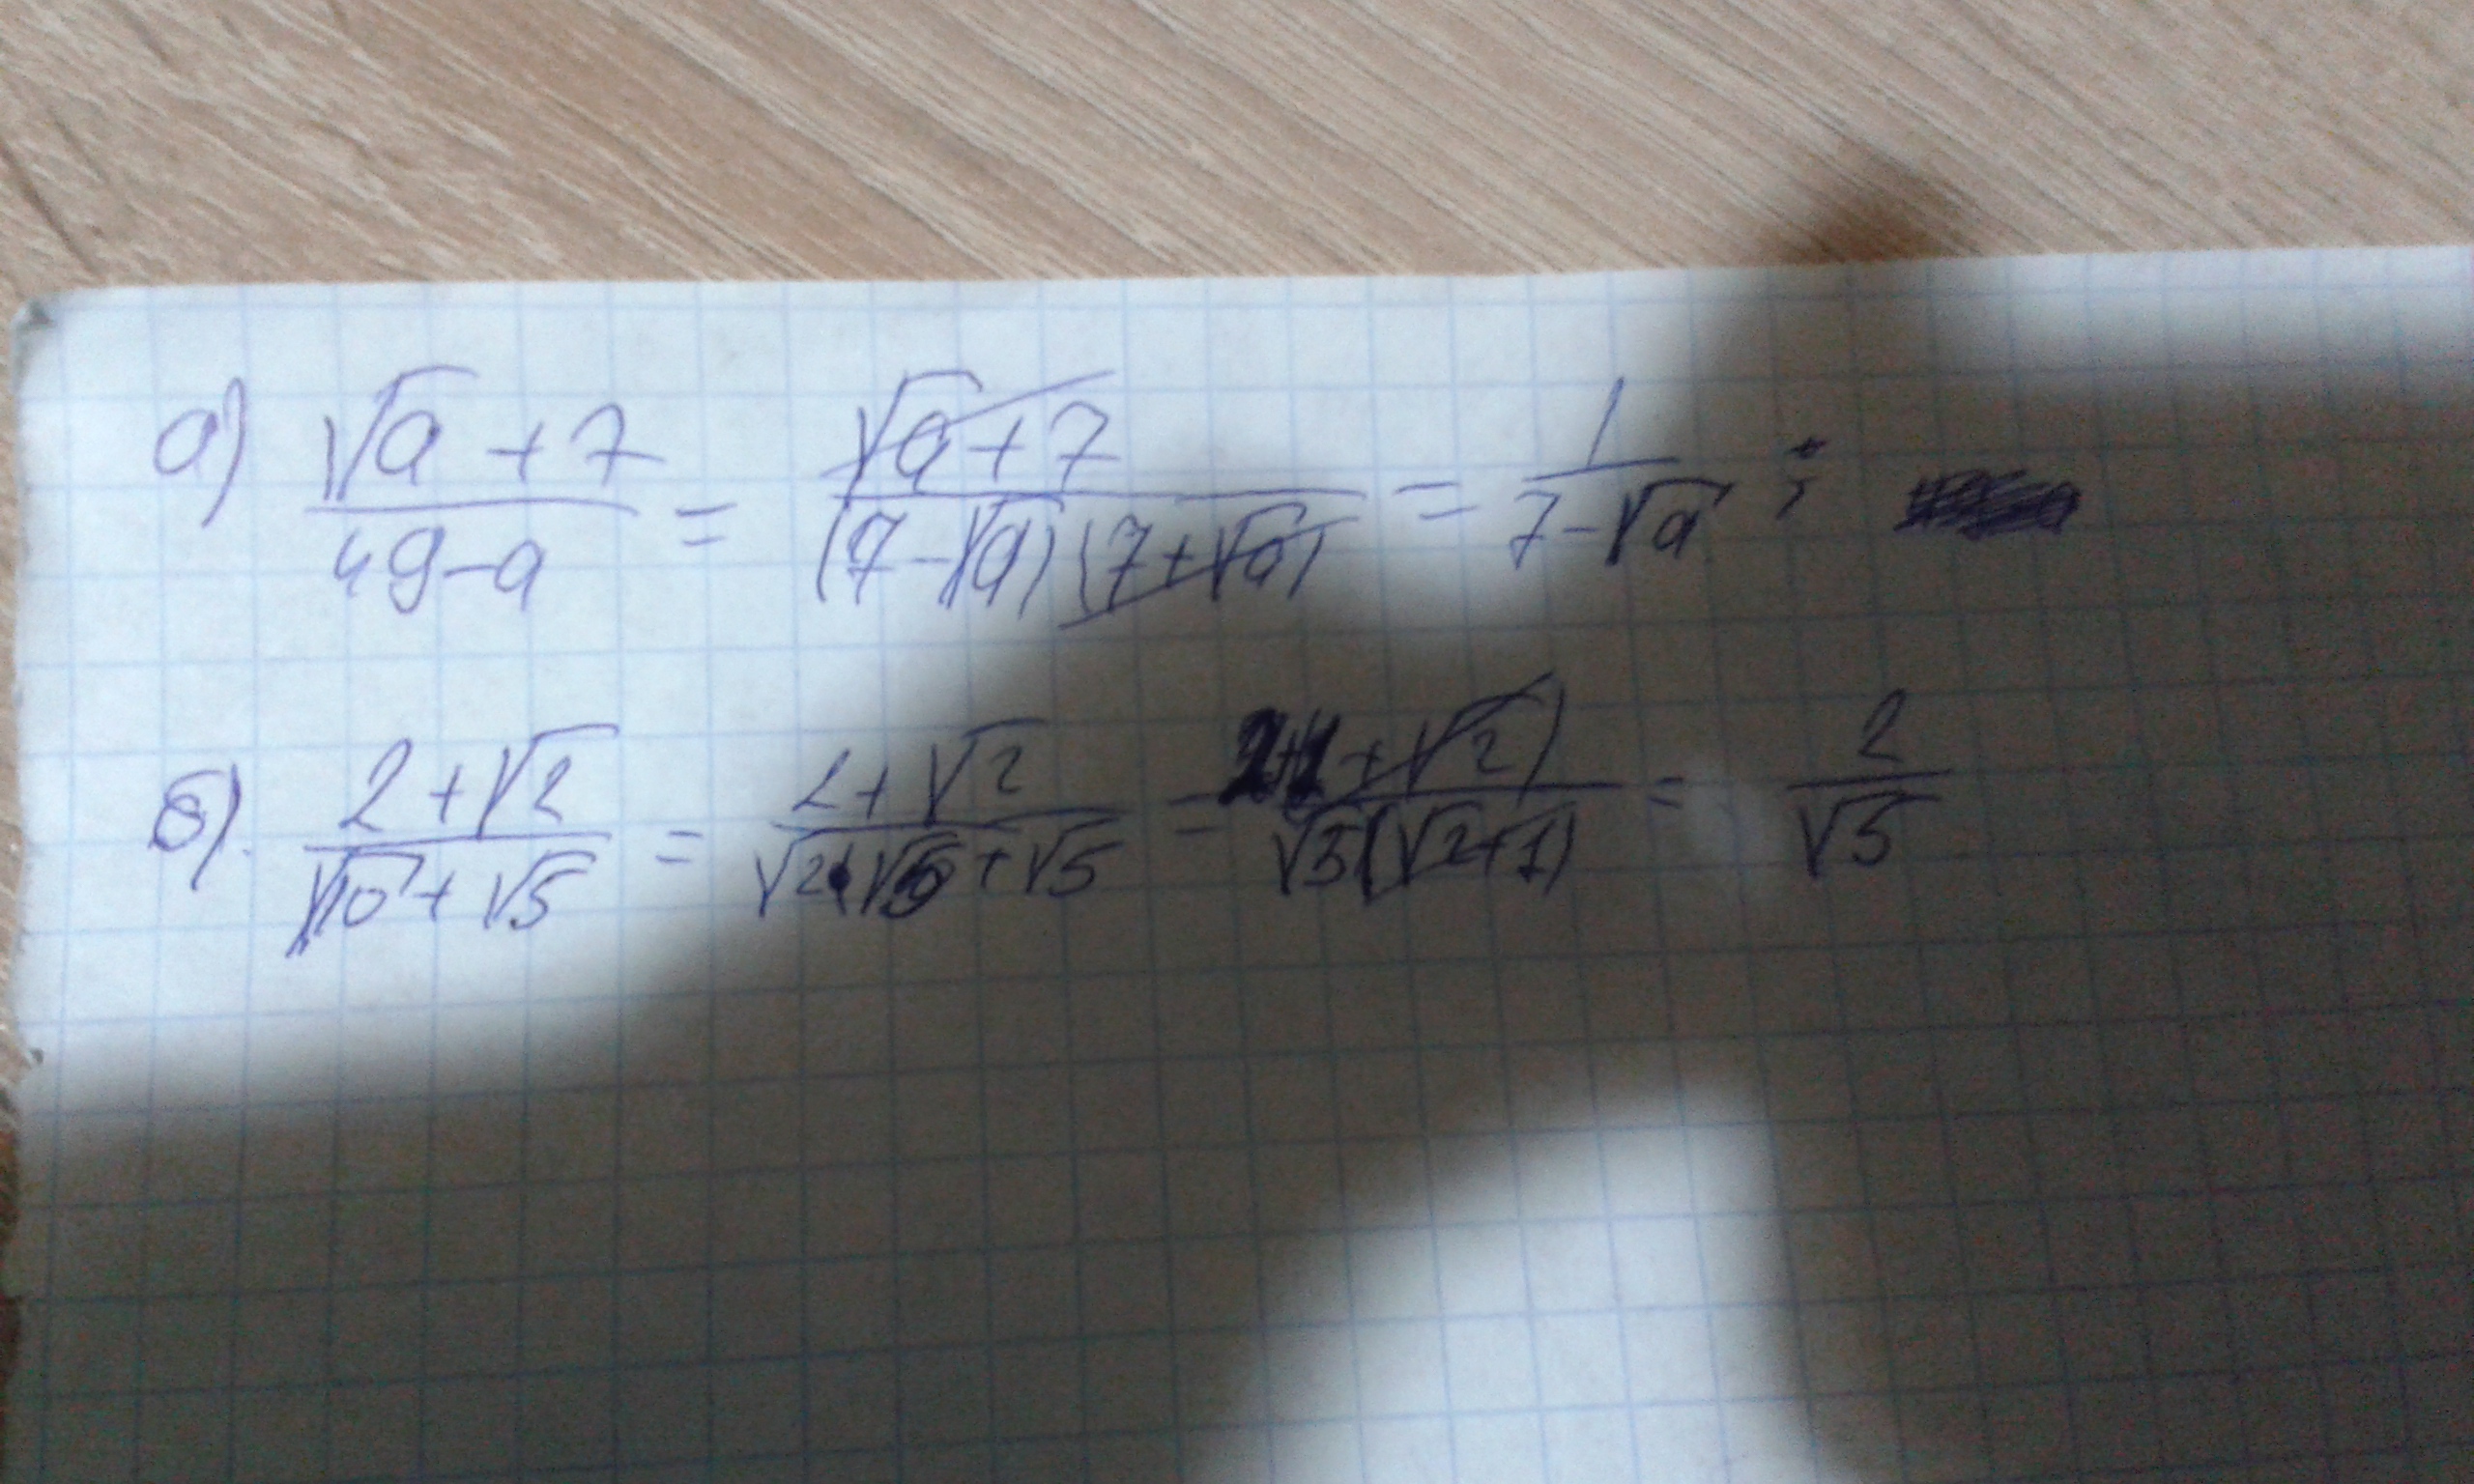 а) (√a + 7)/(49 - a) = (√a + 7)/((7 - √a)(7 + √a)) = 1/(7 - √a);
б). (2 + √2)/(√10 + √5) = (2 + √2)/(√2·√5 + √5) = + √2)/(√5(√2 + 1)) = 2/√5